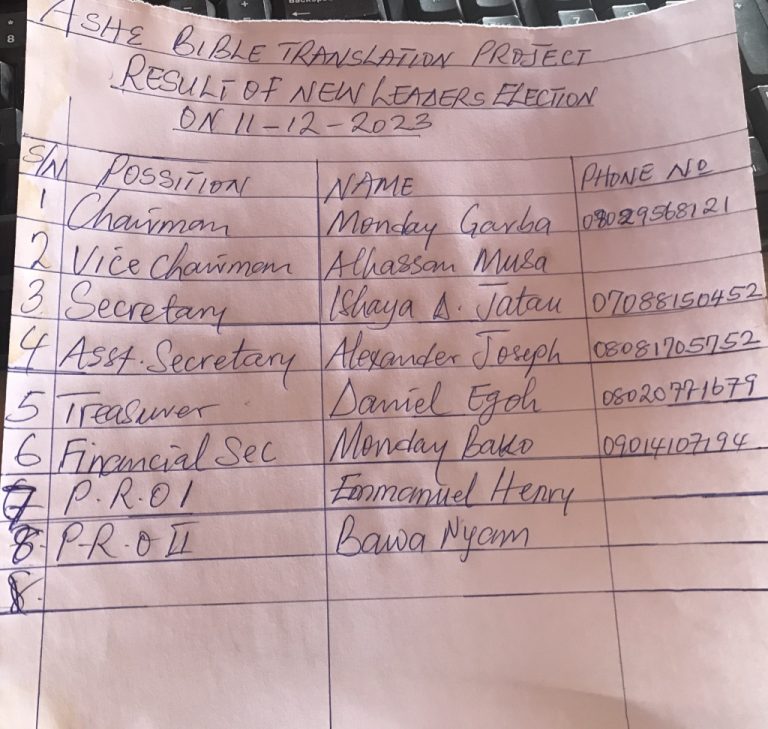 ASHE BIBLE TRANSLATION PROJECT
RESULT OF NEW LEADERS ELECTION
ON 11-12-2023
S/N POSSITION NAME PHONE NO
1 Chairman Monday Garba 08029568121
2 Vice Chairman Alhassan Musa
3 Secretary Ishaya A. Jatau 07088150452
4 Asst. Secretary Alexander Joseph 08081705752
5 Treasurer Daniel Egoh 08020771679
6 Financial Sec Monday Bako 09014107194
7 P.R.O I Emmanuel Henry
8. P.R.O II Bawa Nyam
8.